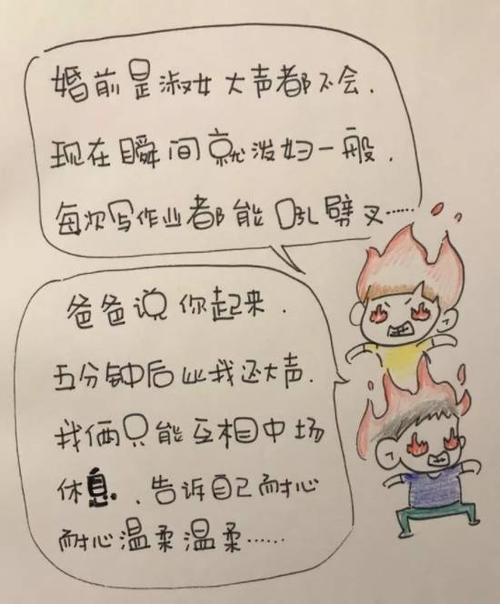 婚前是淑女大声都不会.
现在瞬间就泼妇一般.
每次写作业都能吼劈叉……
爸爸说你起来.
五分钟后比我还大声.
我俩只能互相中场
休息.告诉自己耐心
耐心温柔温柔……